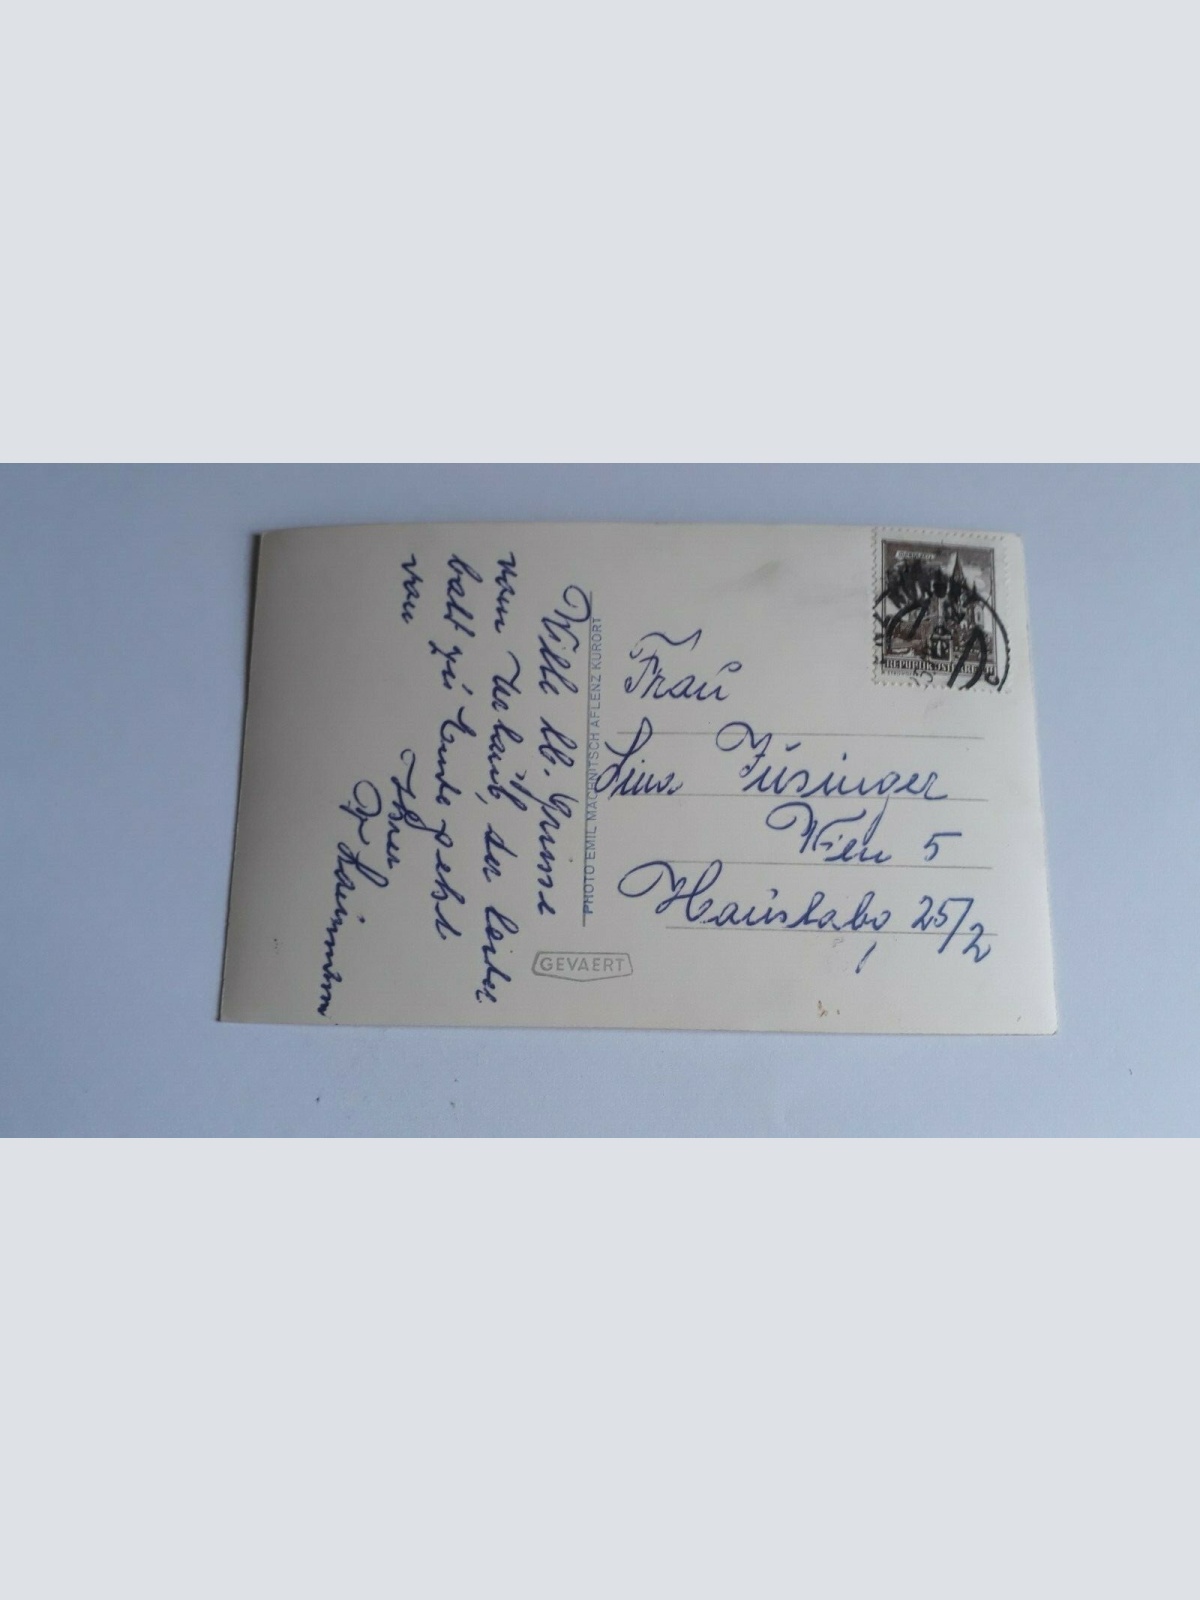 Viele lb. Grüsse
vom Urlaub, der leider
bald zu Ende geht
von
Ihrer
PHOTO EMIL MACHNITSCH AFLENZ KURORT
GEVAERT
REPUBLIK ÖSTERREICH
Frau
Wien 5
25/2